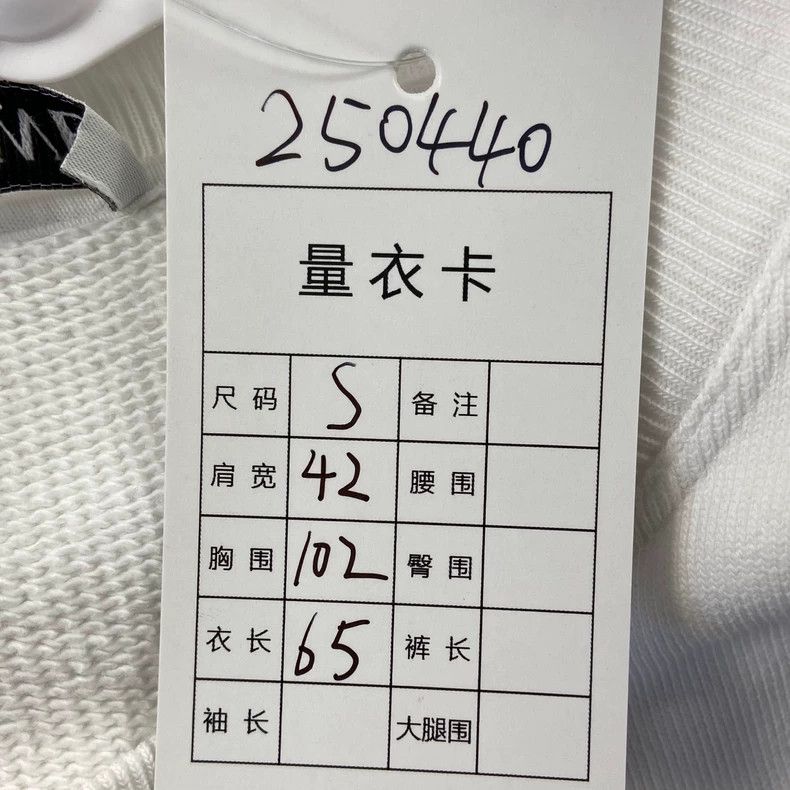 250440
量衣卡
尺码 S 备注
肩宽 42 腰围
胸围 102 臀围
衣长 65 裤长
袖长 大腿围